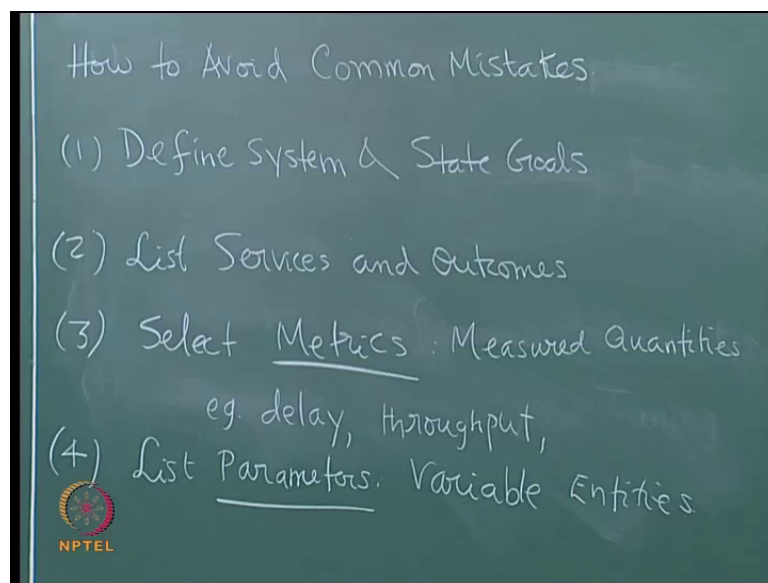 How to Avoid Common Mistakes.
(1) Define System & State Goals
(2) List Services and Outcomes
(3) Select Metrics : Measured Quantities
eg. delay, throughput,
(4) List Parameters. Variable Entities.
NPTEL